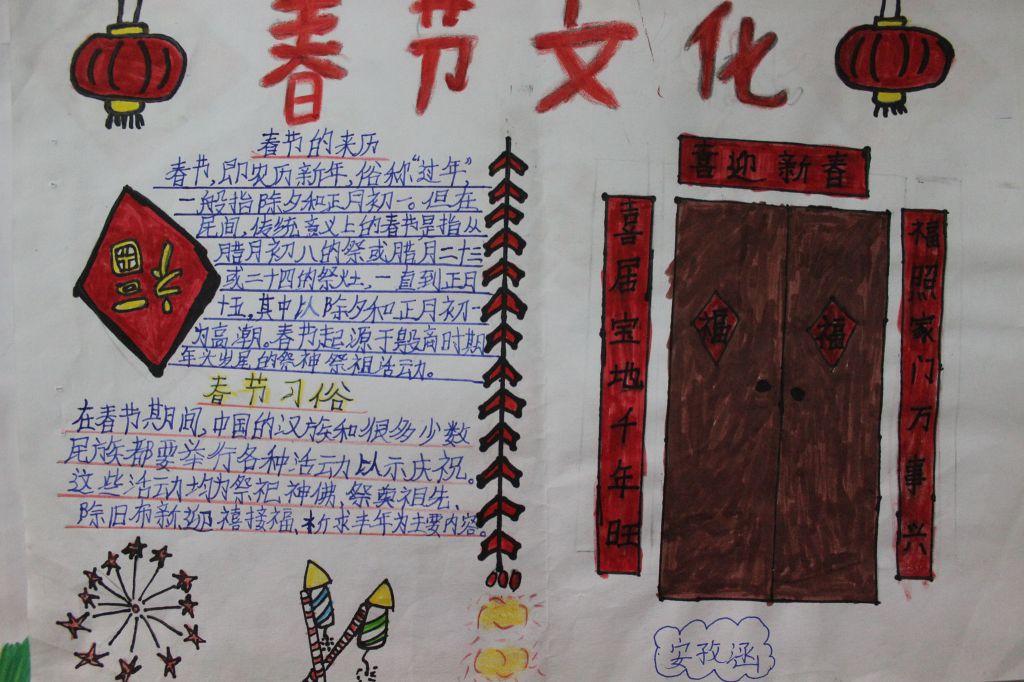 春节文化
春节的来历
春节,即农历新年,俗称“过年”,
一般指除夕和正月初一。但在
民间,传统意义上的春节是指从
腊月初八的祭或腊月二十三
或二十四的祭灶,一直到正月
十五,其中以除夕和正月初一
为高潮。春节起源于殷商时期
年头岁尾的祭神祭祖活动。
春节习俗
在春节期间,中国的汉族和很多少数
民族都要举行各种活动以示庆祝。
这些活动均为祭祀神佛、祭奠祖先、
除旧布新、迎禧接福、祈求丰年为主要内容。
福
喜迎新春
喜居宝地千年旺
福
福
福照家门万事兴
安孜涵